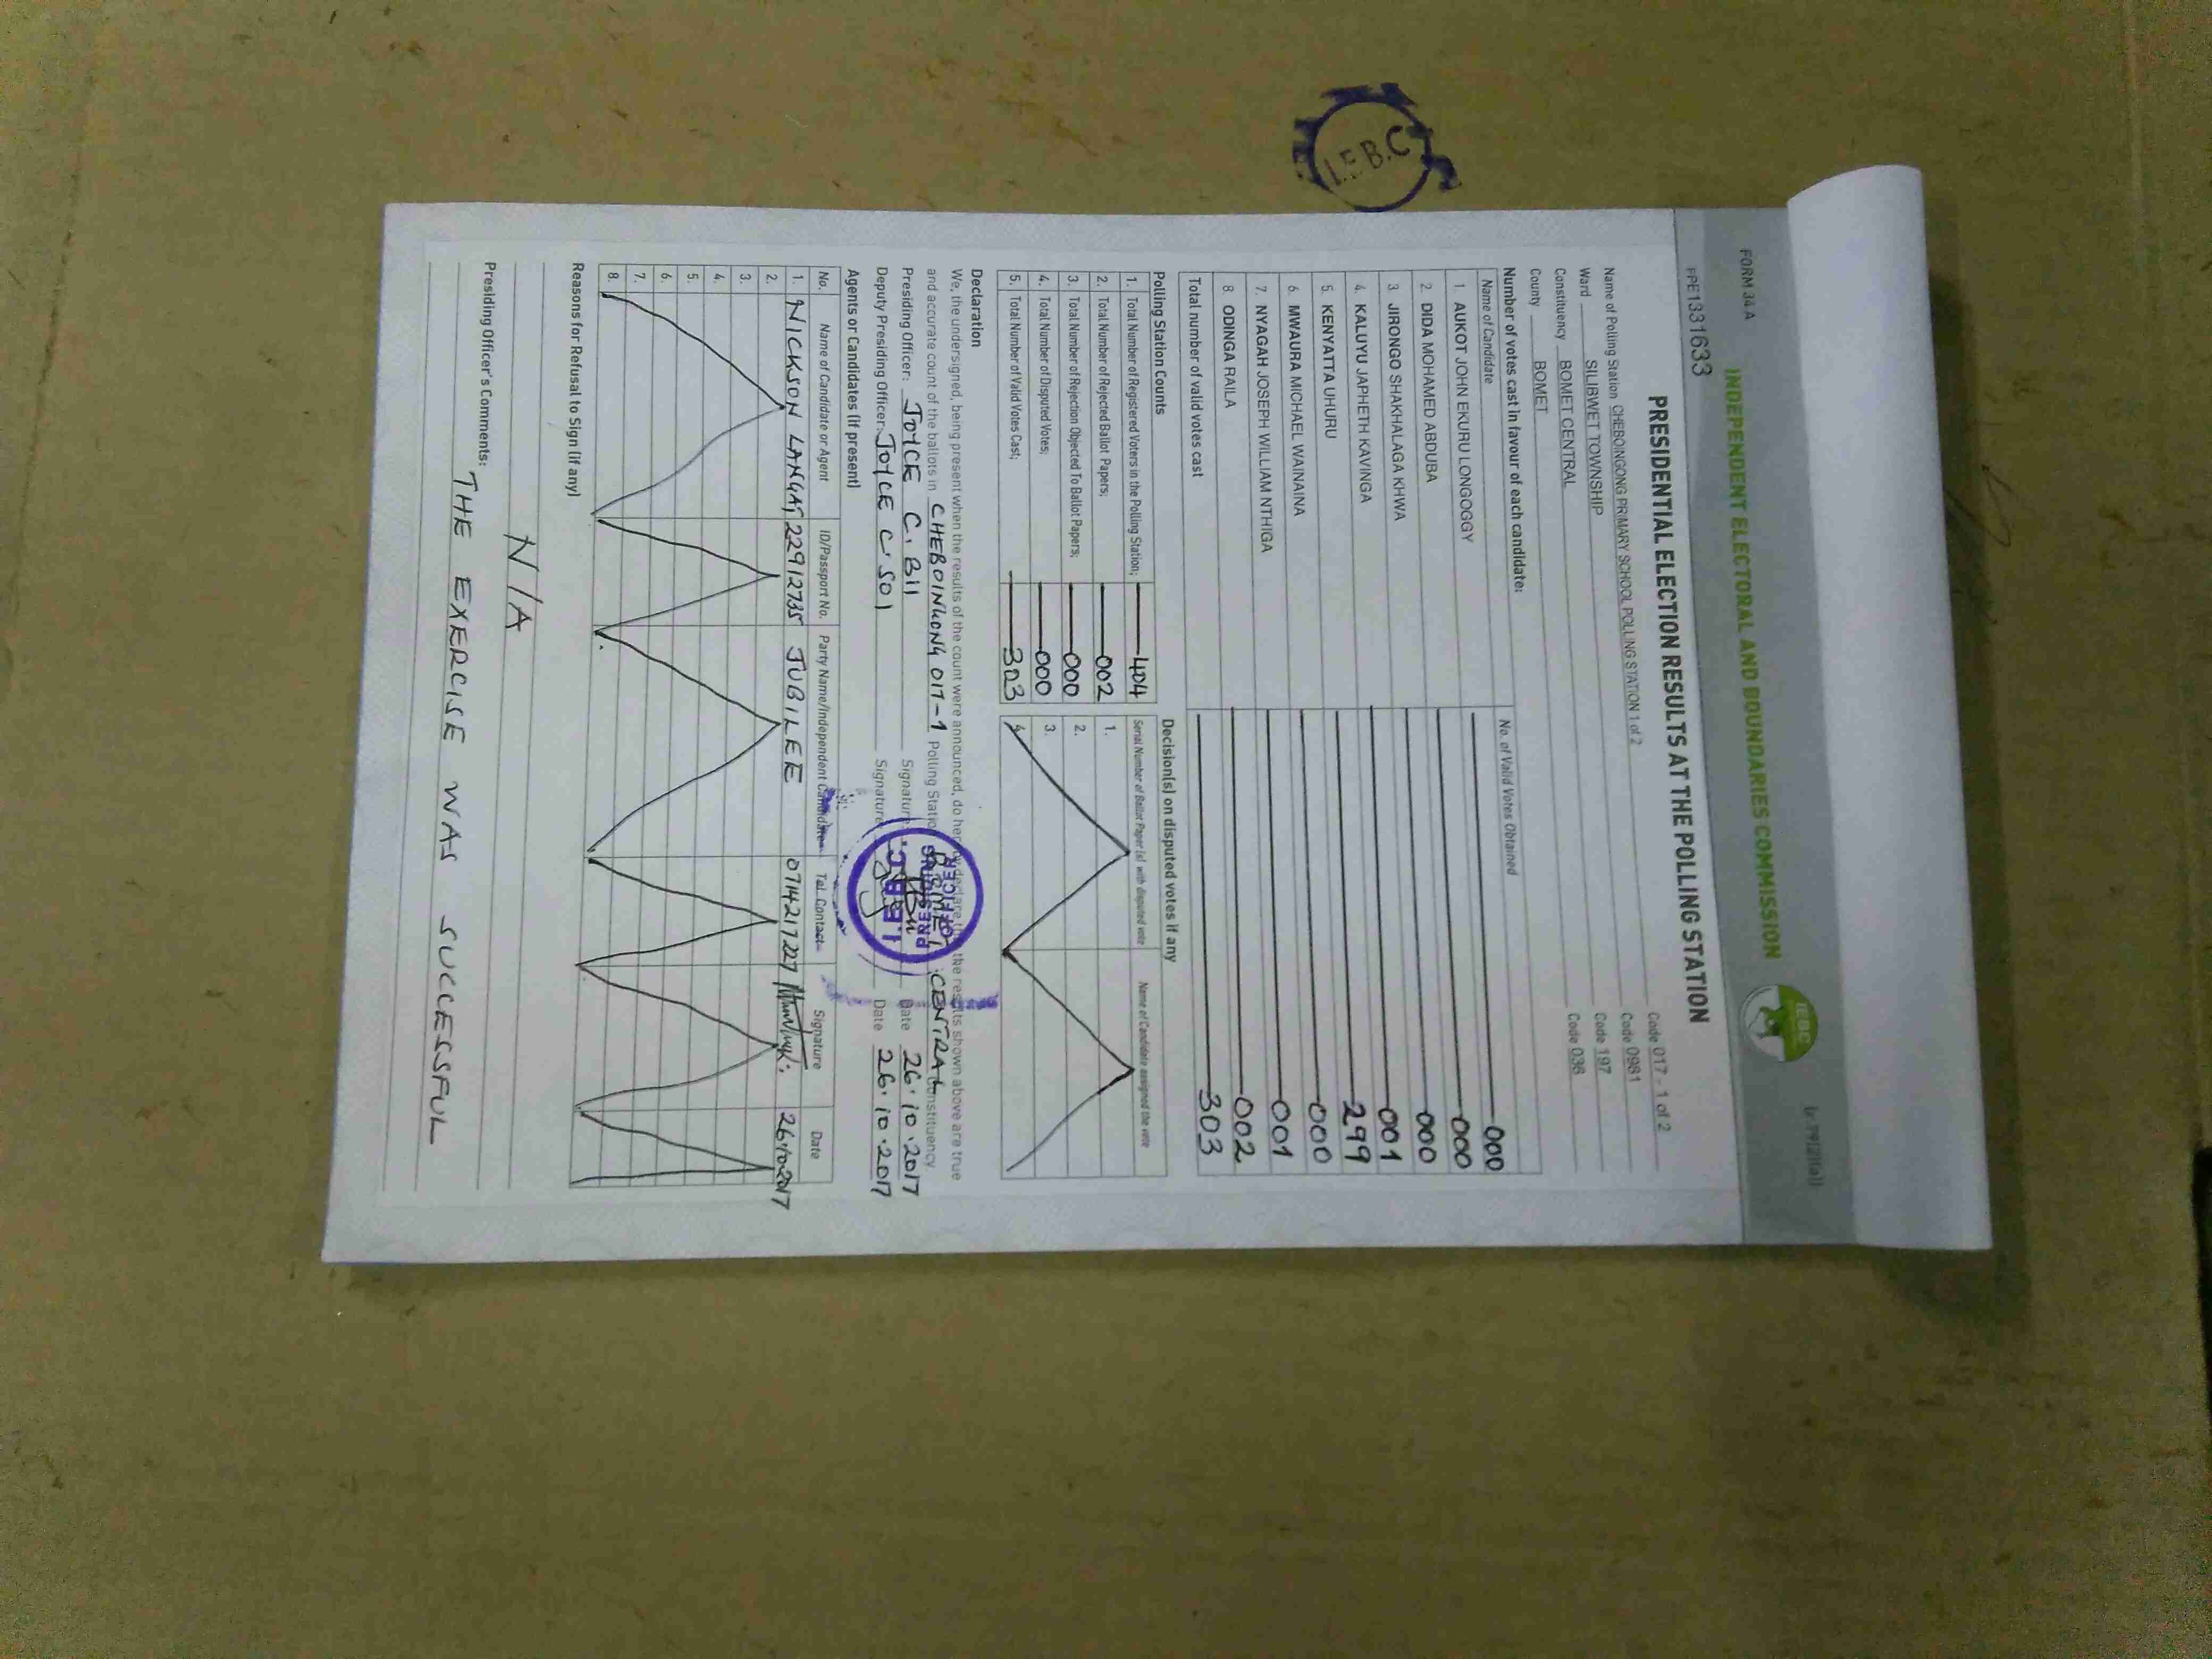 FORM 34 A
INDEPENDENT ELECTORAL AND BOUNDARIES COMMISSION
IEBC
PPE1331633
PRESIDENTIAL ELECTION RESULTS AT THE POLLING STATION
Name of Polling Station CHEBOINGONG PRIMARY SCHOOL POLLING STATION 1 of 2 Code 017 - 1 of 2
Ward SILIBWET TOWNSHIP Code 0981
Constituency BOMET CENTRAL Code 197
County BOMET Code 036
Number of votes cast in favour of each candidate:
Name of Candidate No. of Valid Votes Obtained
1. AUKOT JOHN EKURU LONGOGGY 000
2. DIDA MOHAMED ABDUBA 000
3. JIRONGO SHAKHALAGA KHWA 000
4. KALUYU JAPHETH KAVINGA 001
5. KENYATTA UHURU 299
6. MWAURA MICHAEL WAINAINA 000
7. NYAGAH JOSEPH WILLIAM NTHIGA 001
8 ODINGA RAILA 002
Total number of valid votes cast 303
Polling Station Counts
1. Total Number of Registered Voters in the Polling Station; 404
2. Total Number of Rejected Ballot Papers; 002
3. Total Number of Rejection Objected To Ballot Papers; 000
4. Total Number of Disputed Votes; 000
5. Total Number of Valid Votes Cast; 303
Decision(s) on disputed votes if any
Serial Number of Ballot Paper (s) with disputed vote Name of Candidate assigned the vote
1.
2.
3.
4.
Declaration
We, the undersigned, being present when the results of the count were announced, do hereby declare that the results shown above are true
and accurate count of the ballots in CHEBOINGONG 017-1 Polling Station BOMET CENTRAL Constituency.
Presiding Officer: JOYCE C. BII Signature Date 26.10.2017
Deputy Presiding Officer: JOYCE C. SOI Signature Date 26.10.2017
PRESIDING OFFICER
I.E.B.C.
Agents or Candidates (if present)
No. Name of Candidate or Agent ID/Passport No. Party Name/Independent Candidate Tel. Contact Signature Date
1. NICKSON LANGAT 22912735 JUBILEE 0714217227 26.10.2017
2.
3.
4.
5.
6.
7.
8.
Reasons for Refusal to Sign (if any)
N/A
Presiding Officer's Comments:
THE EXERCISE WAS SUCCESSFUL
I.E.B.C